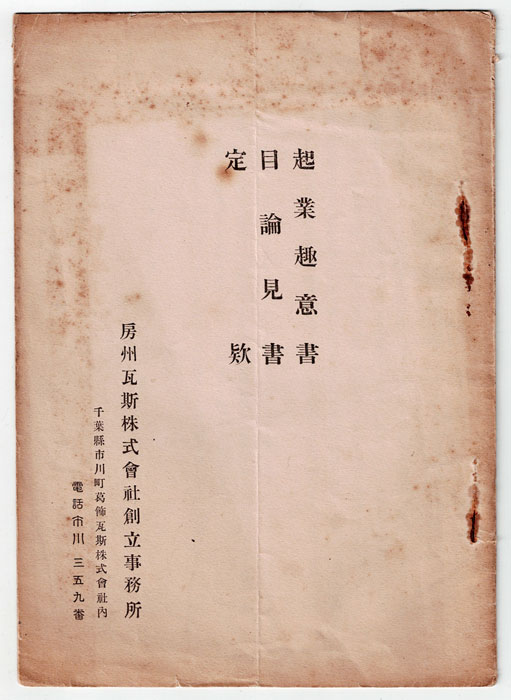 起業趣意書
目論見書
定欵
房州瓦斯株式會社創立事務所
千葉縣市川町葛飾瓦斯株式會社內
電話市川三五九番